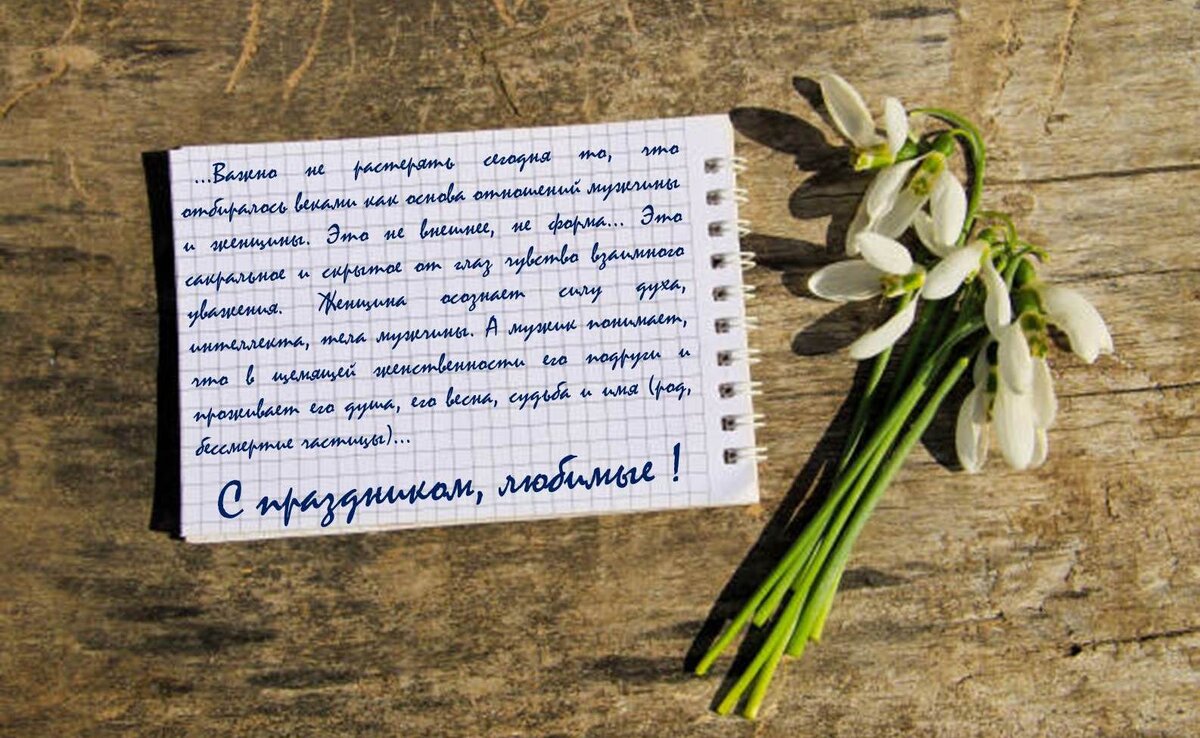 ...Важно не растерять сегодня то, что
отбиралось веками как основа отношений мужчины
и женщины. Это не внешнее, не форма... Это
сакральное и скрытое от глаз чувство взаимного
уважения. Женщина осознает силу духа,
интеллекта, тела мужчины. А мужик понимает,
что в щемящей женственности его подруги и
проживает его душа, его весна, судьба и имя (род,
бессмертие частицы)...
С праздником, любимые !